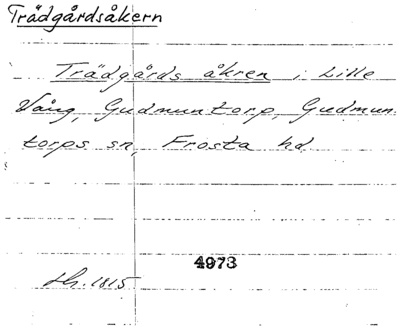 Trädgårdsåkern
Trädgårds åkren i Lille
Vång, Gudmuntorp, Gudmun
torps sn, Frosta hd
4973
1815